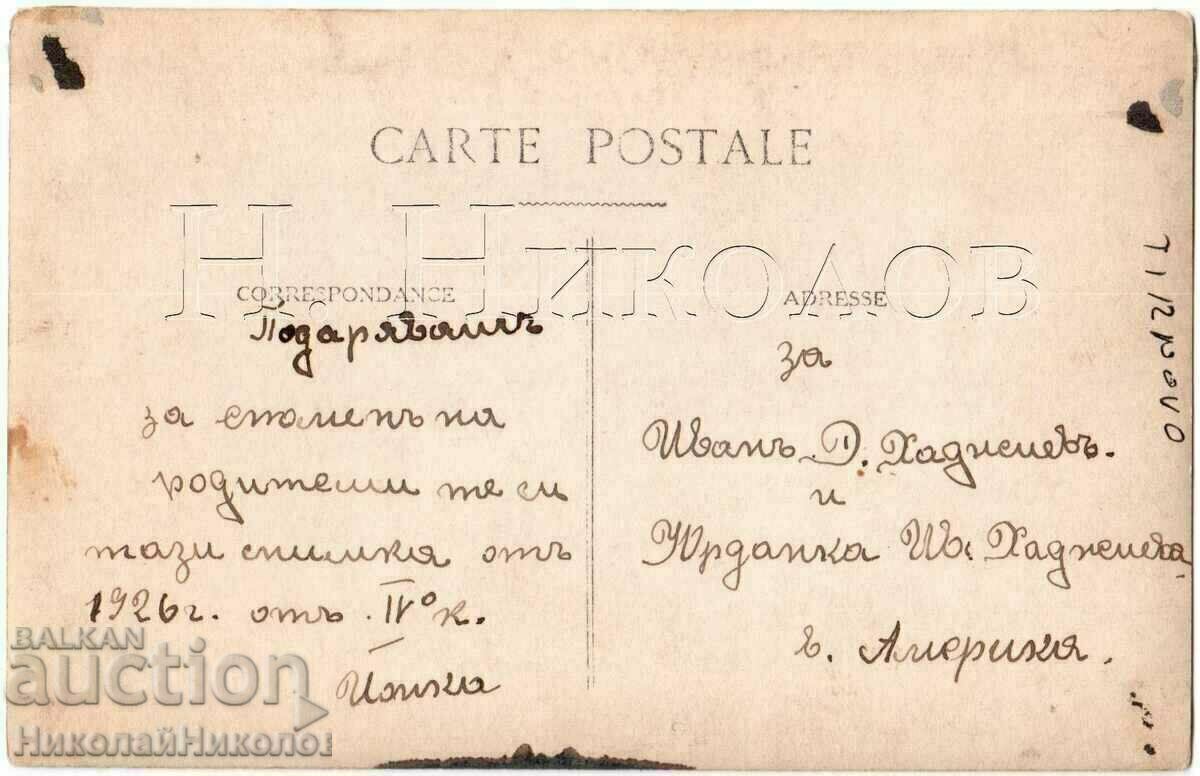 CARTE POSTALE
Н. НИКОЛОВ
CORRESPONDANCE
Подарявамъ
за споменъ на
родители те си
тази снимка отъ
1926 г. отъ IV° к.
ADRESSE
за
Иванъ Д. Хаджиевъ.
и
Юрданка Ив. Хаджиева
в. Америка.
TIRNOVO
BALKAN
auction
НиколайНиколов